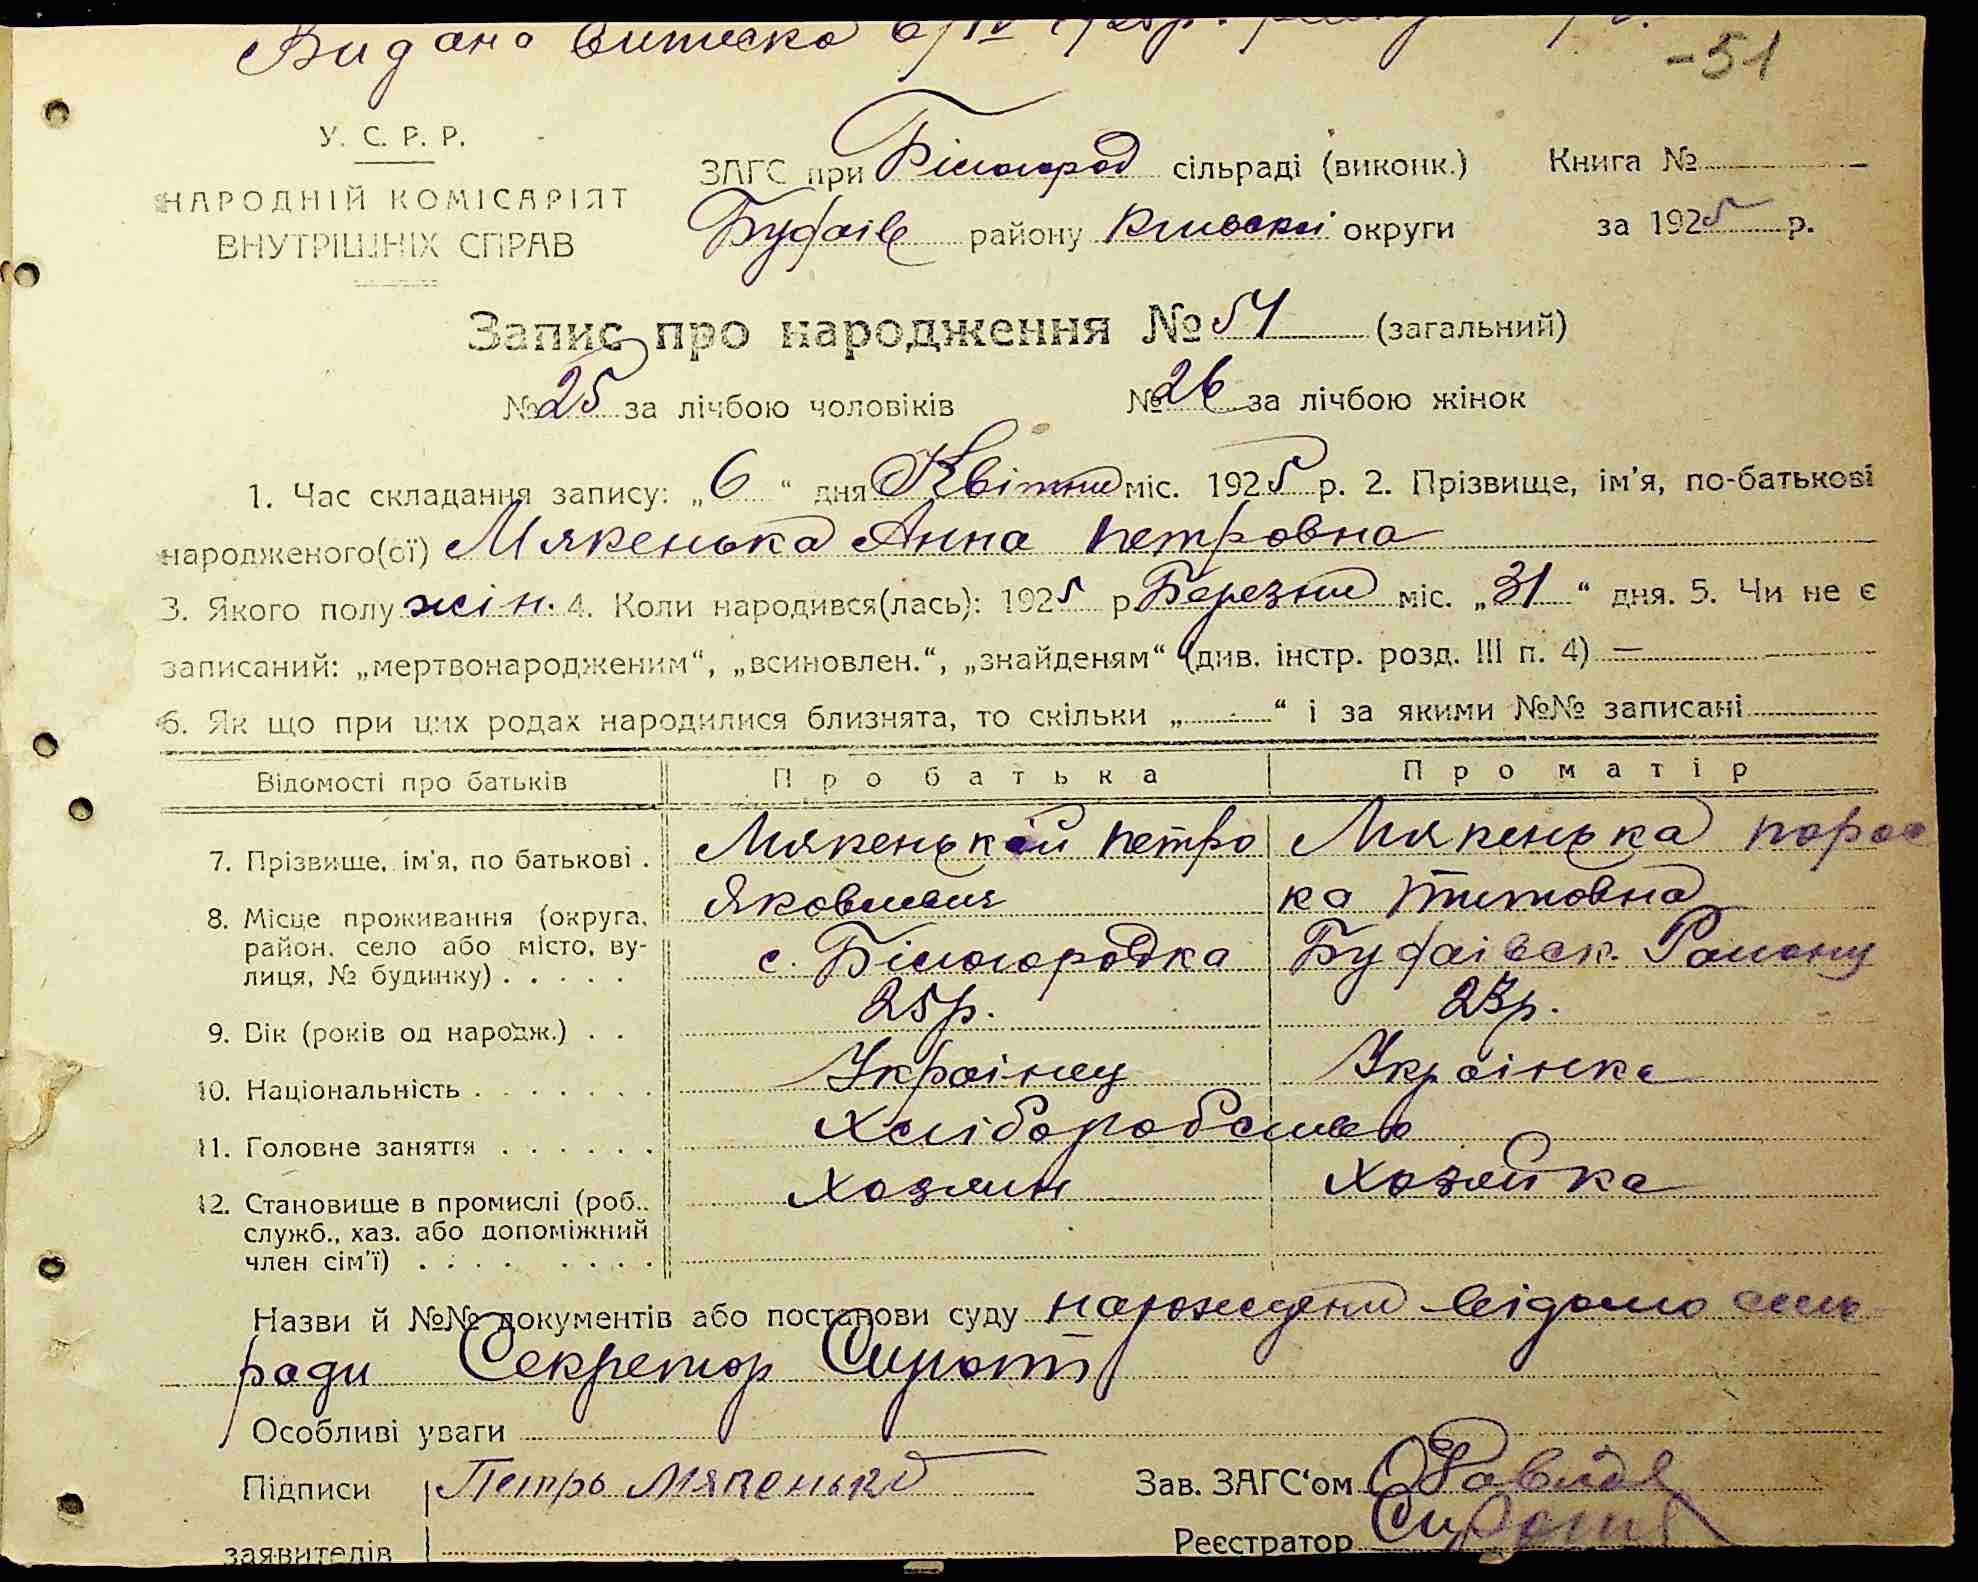 Видана витеска 6/IV 1925р.
-51
У. С. Р. Р.
НАРОДНІЙ КОМІСАРІЯТ
ВНУТРІШНІХ СПРАВ
ЗАГС при Білогород сільраді (виконк.) Книга №
Будаїв району Київскої округи за 1925 р.
Запис про народження № 51 (загальний)
№ 25 за лічбою чоловіків № 26 за лічбою жінок
1. Час складання запису: „6“ дня Квітня міс. 1925 р. 2. Прізвище, ім'я, по-батькові
народженого(ої) Мякенька Анна Петровна
3. Якого полу жін. 4. Коли народився(лась): 1925 р. Березня міс. „31“ дня. 5. Чи не є
записаний: „мертвонародженим“, „всиновлен.“, „знайденям“ (див. інстр. розд. III п. 4) —
6. Як що при цих родах народилися близнята, то скільки „-“ і за якими №№ записані
Відомості про батьків Про батька Про матір
7. Прізвище, ім'я, по батькові . Мякенький Петро Мякенька Парас
Яковлевич ка Титовна
8. Місце проживання (округа, район, село або місто, вулиця, № будинку) . . . . . с. Білогородка Будаівск. Району
9. Вік (років од народж.) . . 25р. 23р.
10. Національність . . . . . . . Українец Українка
11. Головне заняття . . . . . . Хліборобство
12. Становище в промислі (роб., служб., хаз. або допоміжний член сім'ї) . . . . . . . . Хозяин Хозяйка
Назви й №№ документів або постанови суду нарождени відомо силь
ради Секретар Сирота
Особливі уваги
Підписи Петрь Мякенько Зав. ЗАГС'ом
заявителів Реєстратор Сирота